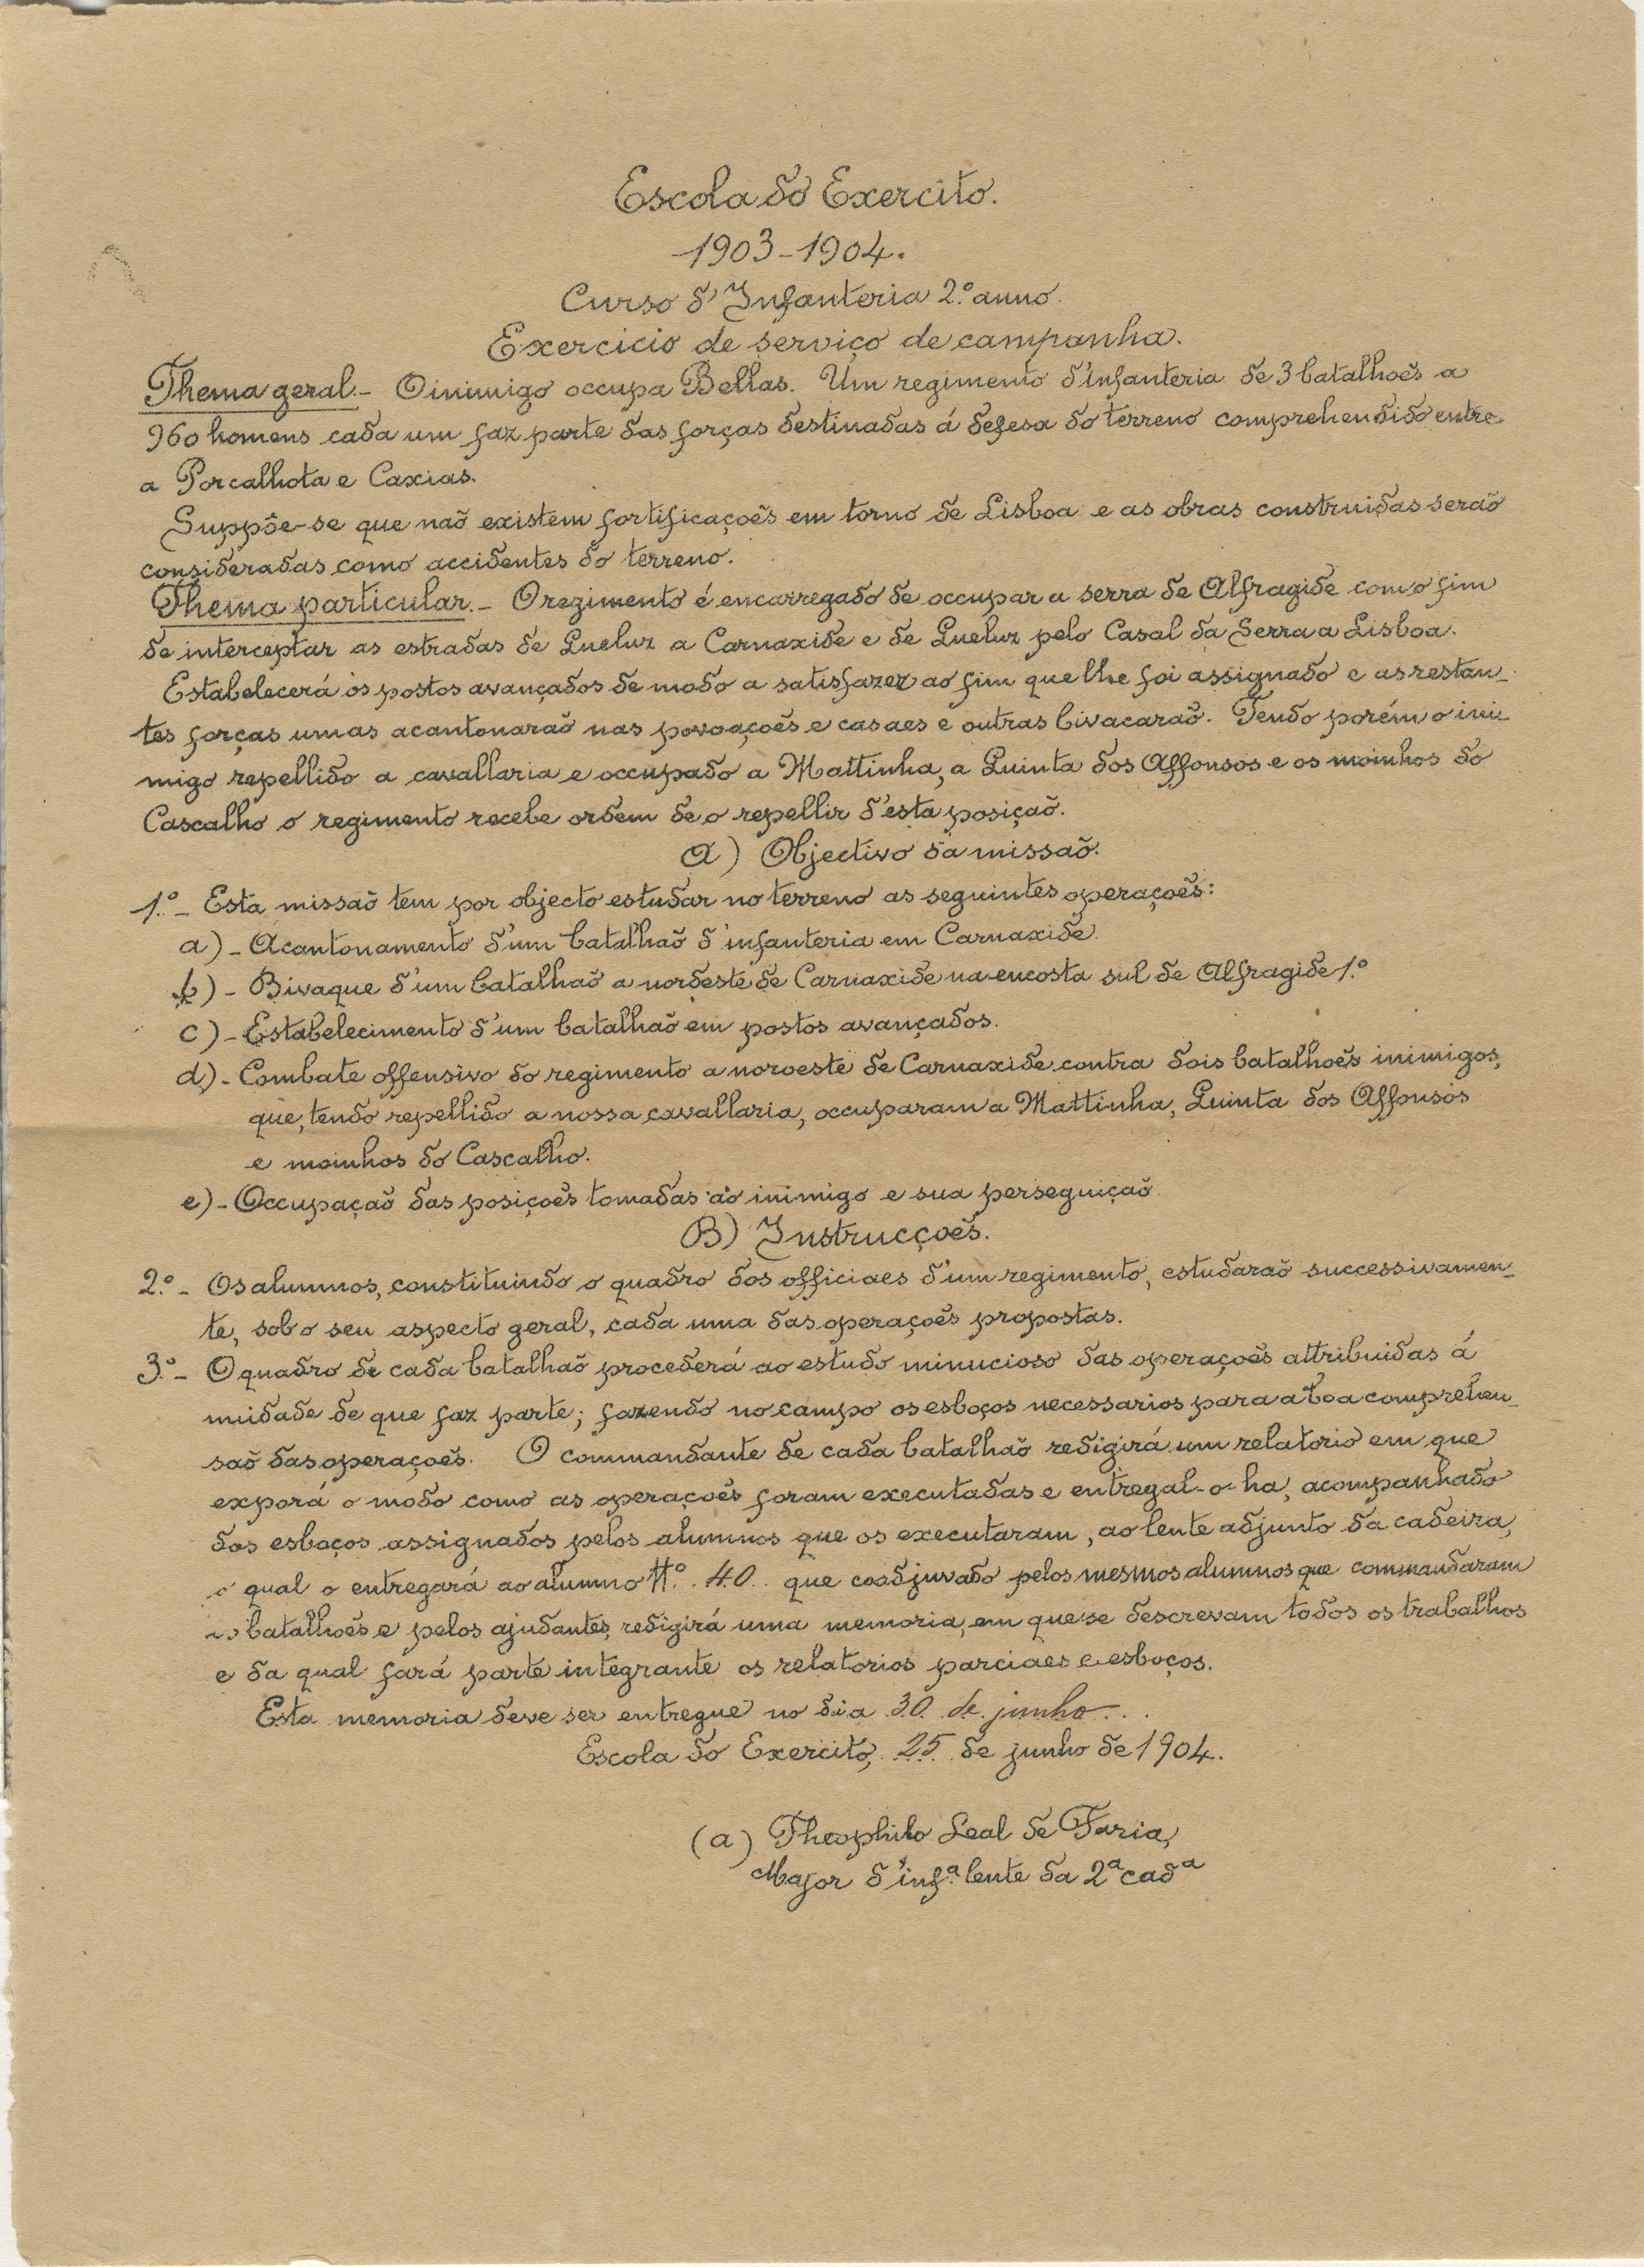 Escola do Exercito.
1903-1904.
Curso d'Infanteria 2.º anno.
Exercicio de serviço de campanha.
Thema geral.- O inimigo occupa Bellas. Um regimento d'infanteria de 3 batalhoẽs a
960 homens cada um faz parte das forças destinadas á defesa do terreno comprehendido entre
a Porcalhota e Caxias.
Suppõe-se que naõ existem fortificaçoẽs em torno de Lisboa e as obras construidas seraõ
consideradas como accidentes do terreno.
Thema particular.- O regimento é encarregado de occupar a serra de Alfragide com o fim
de interceptar as estradas de Queluz a Carnaxide e de Queluz pelo Casal da Serra a Lisboa.
Estabelecerá os postos avançados de modo a satisfazer ao fim que lhe foi assignado e as restan-
tes forças umas acantonaraõ nas povoaçoẽs e casaes e outras bivacaraõ. Tendo porém o ini-
migo repellido a cavallaria e occupado a Mattinha, a Quinta dos Affonsos e os moinhos do
Cascalho o regimento recebe ordem de o repellir d'esta posiçaõ.
A) Objectivo da missaõ.
1.º- Esta missaõ tem por objecto estudar no terreno as seguintes operaçoẽs:
a)- Acantonamento d'um batalhaõ d'infanteria em Carnaxide.
b)- Bivaque d'um batalhaõ a nordeste de Carnaxide na encosta sul de Alfragide 1.º
c)- Estabelecimento d'um batalhaõ em postos avançados.
d)- Combate offensivo do regimento a noroeste de Carnaxide contra dois batalhoẽs inimigos,
que, tendo repellido a nossa cavallaria, occuparam a Mattinha, Quinta dos Affonsos
e moinhos do Cascalho.
e)- Occupaçaõ das posiçoẽs tomadas ao inimigo e sua perseguiçaõ
B) Instrucçoẽs.
2.º- Os alumnos, constituindo o quadro dos officiaes d'um regimento, estudaraõ successivamen-
te, sob o seu aspecto geral, cada uma das operaçoẽs propostas.
3.º- O quadro de cada batalhaõ procederá ao estudo minucioso das operaçoẽs attribuidas á
unidade de que faz parte; fazendo no campo os esboços necessarios para a boa comprehen-
saõ das operaçoẽs. O commandante de cada batalhaõ redigirá um relatorio em que
exporá o modo como as operaçoẽs foram executadas e entregal-o-ha, acompanhado
dos esboços assignados pelos alumnos que os executaram, ao lente adjunto da cadeira,
o qual o entregará ao alumno N.º 40 que coadjuvado pelos mesmos alumnos que commandaram
os batalhoẽs e pelos ajudantes, redigirá uma memoria, em que se descrevam todos os trabalhos
e da qual fará parte integrante os relatorios parciaes e esboços.
Esta memoria deve ser entregue no dia 30 de junho...
Escola do Exercito, 25 de junho de 1904.
(a) Theophilo Leal de Faria,
Major d'inf.ª lente da 2.ª cad.ª